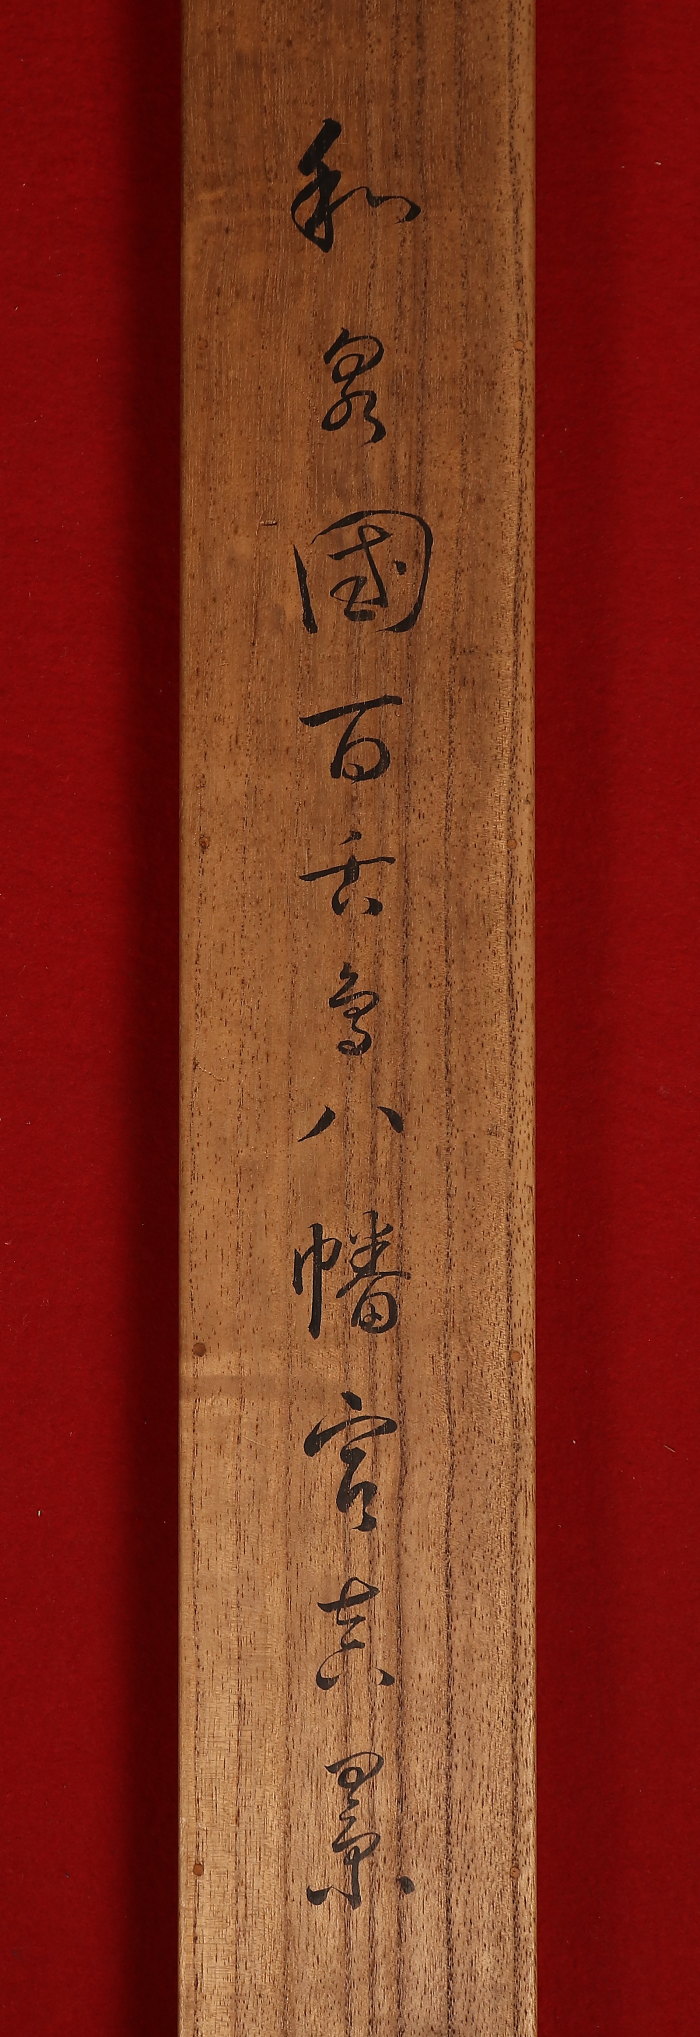 和泉國百舌鳥八幡宮真景